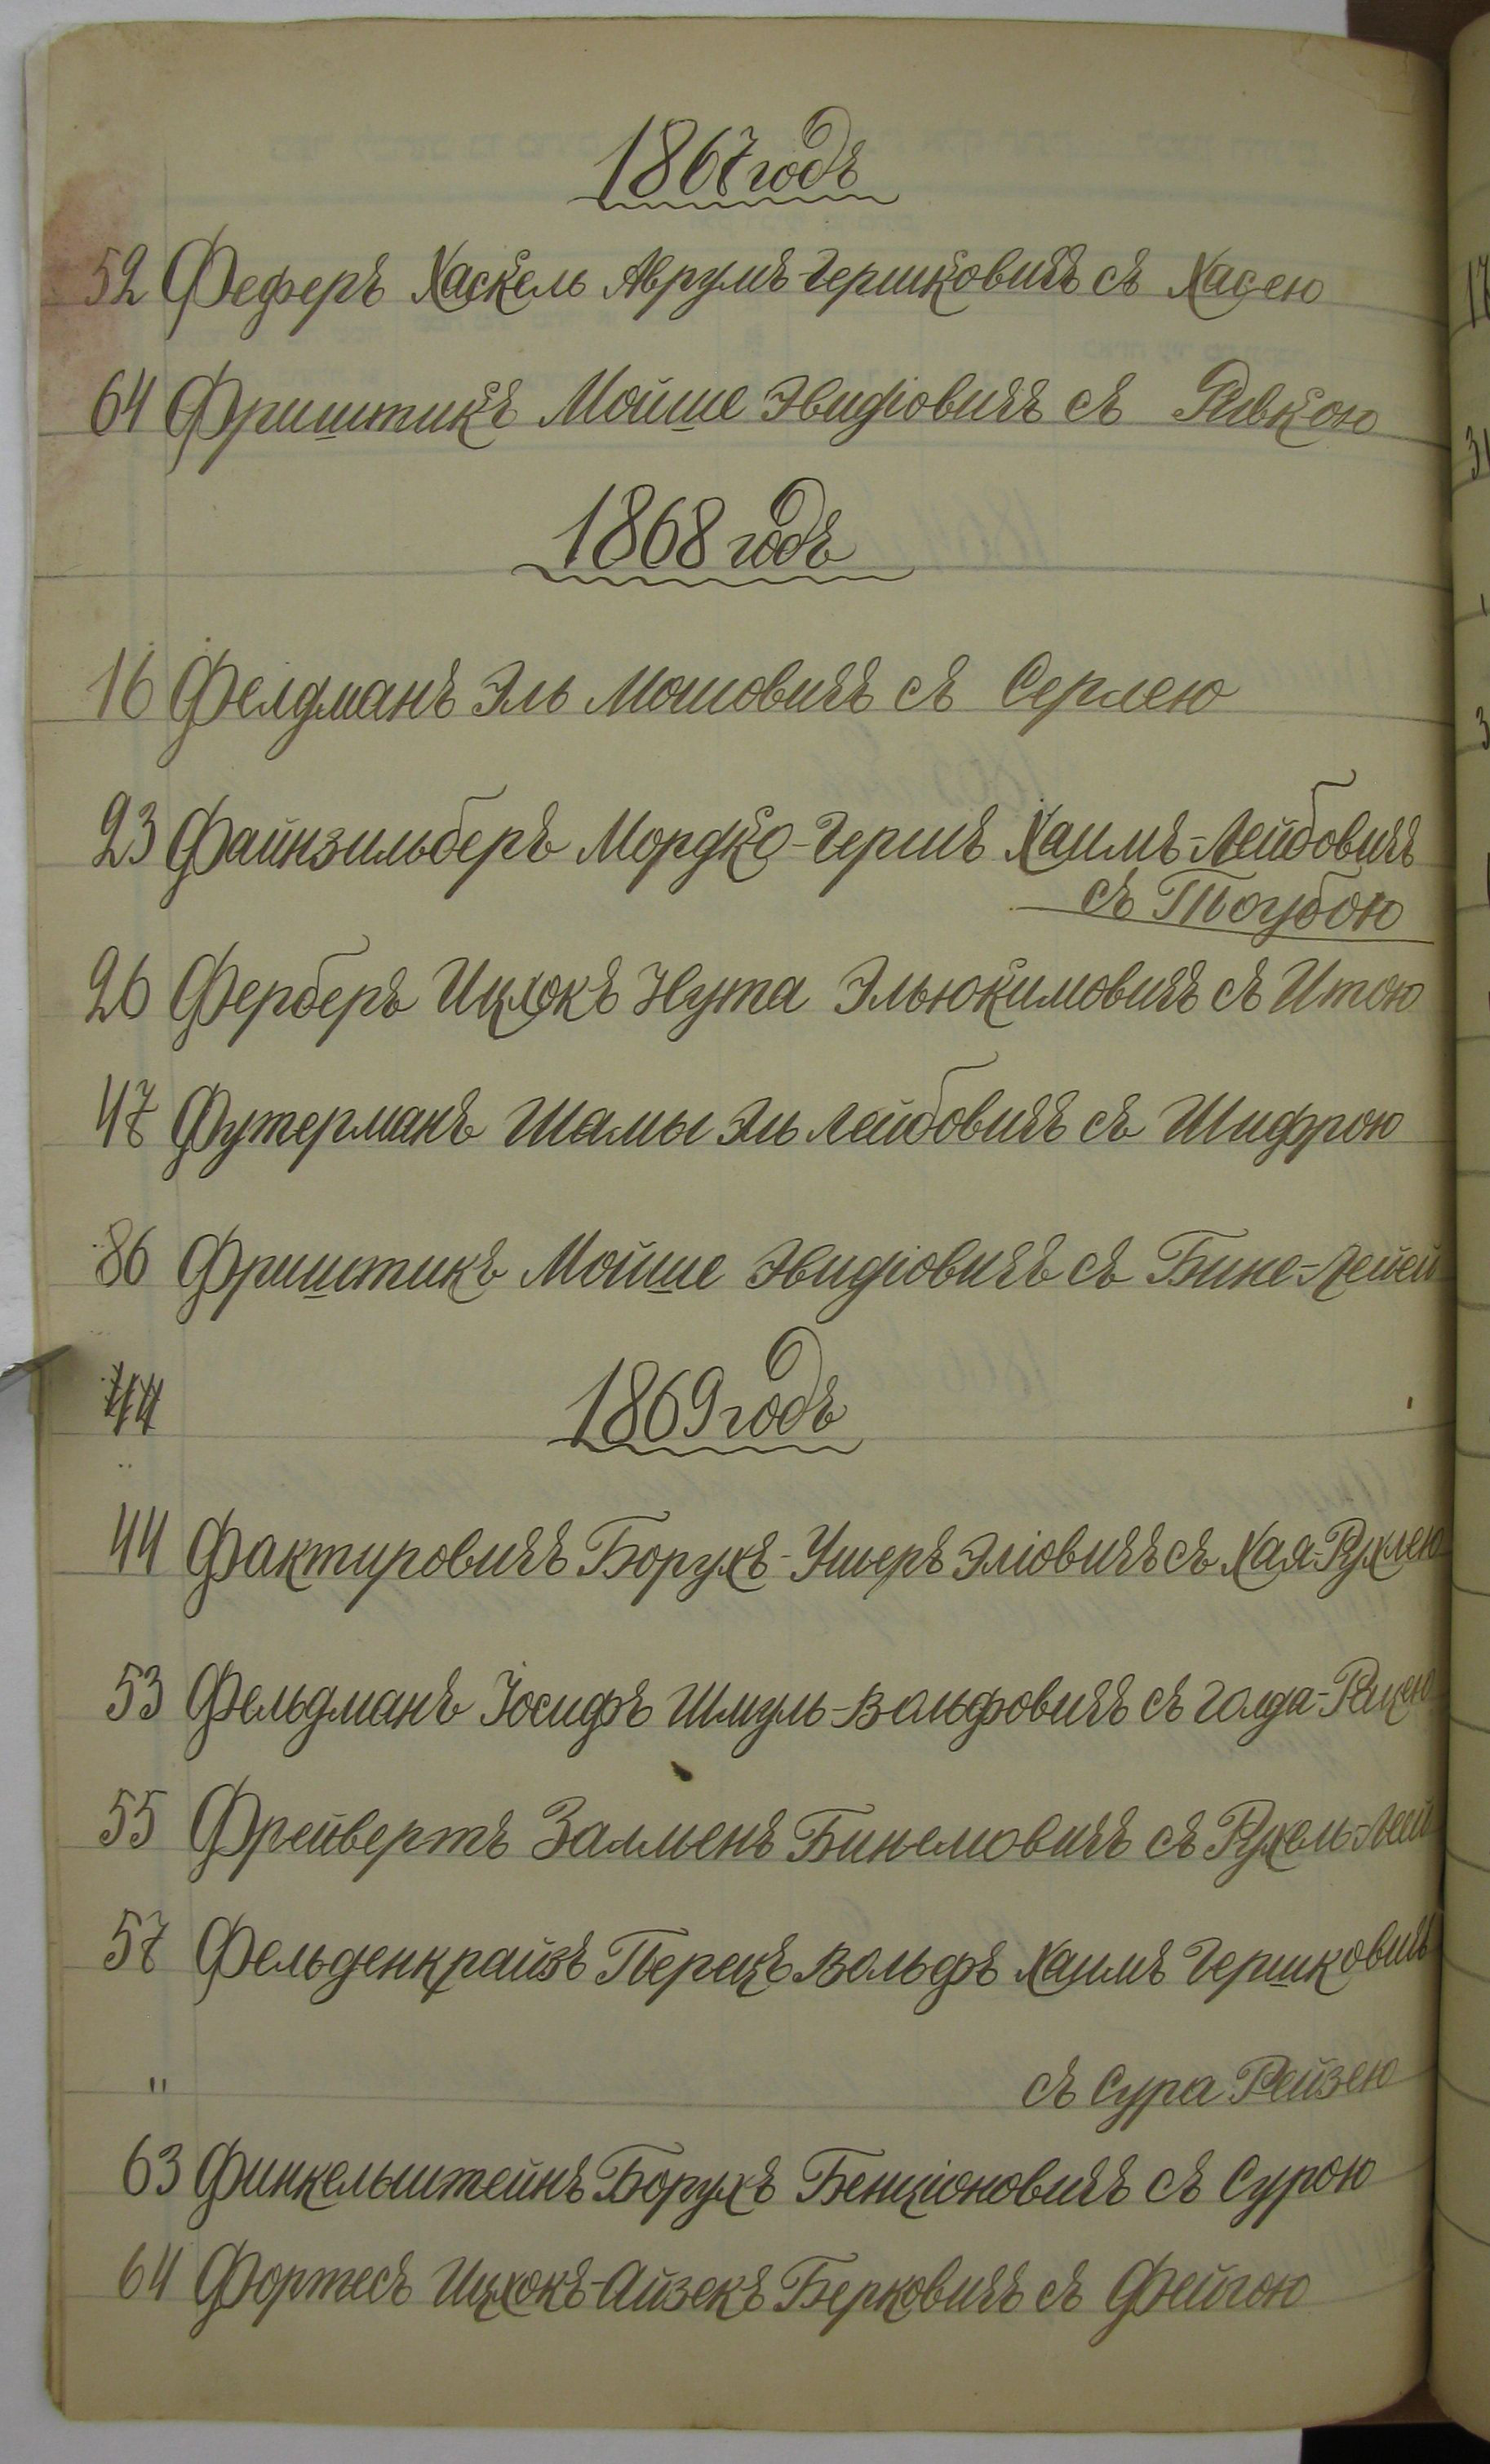 1867 годъ
52 Феферъ Хаскель Аврумъ-Гершковичъ съ Хасею
64 Фриштикъ Мойше Эвидіовичъ съ Ривкою
1868 годъ
16 Фелдманъ Эль Мошовичъ съ Серлею
23 Файнзильберъ Мордко-Гершъ Хаимъ-Лейбовичъ
съ Таубою
26 Ферберъ Ицхокъ Нута Эльюкимовичъ съ Итою
47 Футерманъ Шамы Эль Лейбовичъ съ Шифрою
86 Фриштикъ Мойше Эвидіовичъ съ Бине-Леей
44
1869 годъ
44 Фактировичъ Борухъ-Ушеръ Эліовичъ съ Хая-Рухлею
53 Фельдманъ Іосифъ Шмуль-Вольфовичъ съ Голда-
55 Фрейвертъ Залменъ Бинемовичъ съ Рухель-Леей
57 Фельденкрайзъ Перецъ Вольфъ Хаимъ Гершковичъ
" съ Сура Рейзею
63 Финкельштейнъ Борухъ Бенціоновичъ съ Сурою
64 Фортесъ Ицхокъ-Айзекъ Берковичъ съ Фейгою